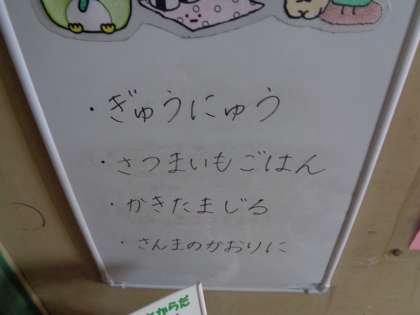 ・ぎゅうにゅう
・さつまいもごはん
・かきたまじる
・さんまのかおりに
からだ